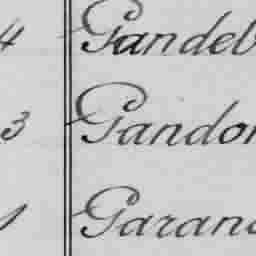 4 Gandeb
3 Gandon
1 Garand